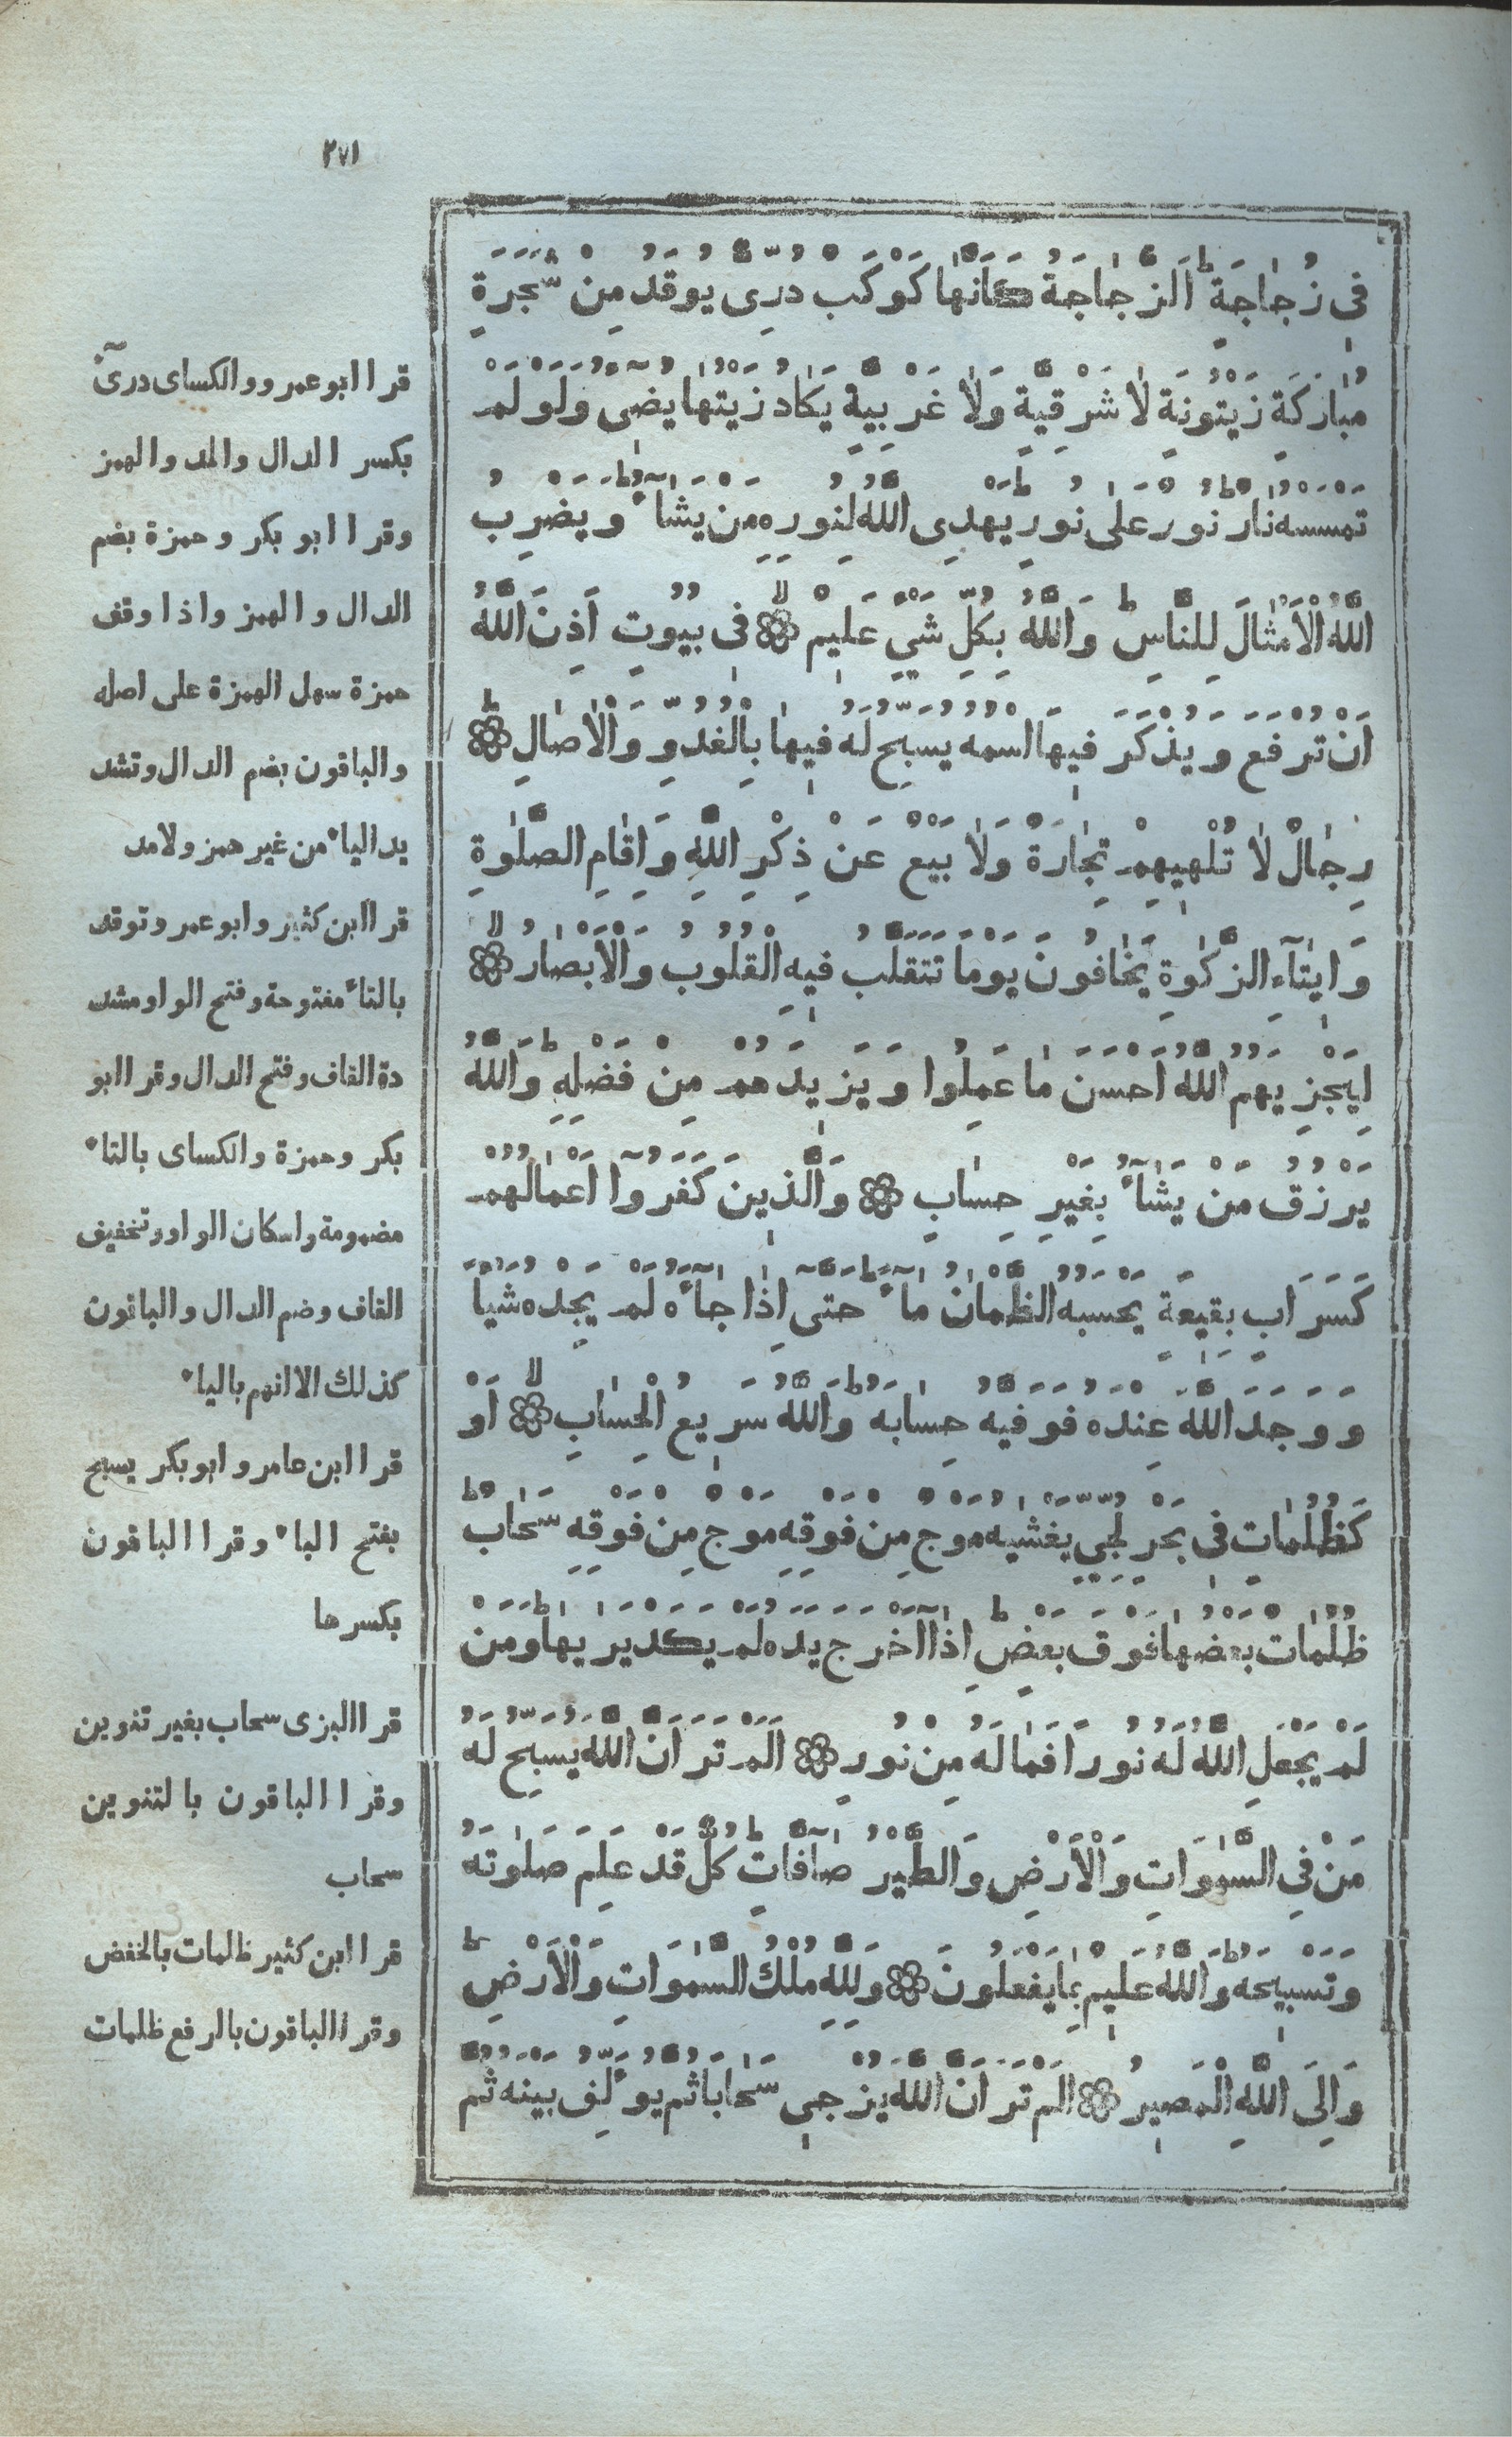 ٢٧١
فِى زُجَاجَةٍ ۖ اَلزُّجَاجَةُ كَاَنَّهَا كَوْكَبٌ دُرِّىٌّ يُوقَدُ مِنْ شَجَرَةٍ
مُبَارَكَةٍ زَيْتُونَةٍ لَا شَرْقِيَّةٍ وَلَا غَرْبِيَّةٍ يَكَادُ زَيْتُهَا يُضِىُٓ وَلَوْ لَمْ
تَمْسَسْهُ نَارٌ ط نُورٌ عَلَى نُورٍ ط يَهْدِى اللَّهُ لِنُورِهِ مَنْ يَشَآءُ ط وَيَضْرِبُ
اللَّهُ الْاَمْثَالَ لِلنَّاسِ ط وَاللَّهُ بِكُلِّ شَيْءٍ عَلِيمٌ لا ۞ فِى بُيُوتٍ اَذِنَ اللَّهُ
اَنْ تُرْفَعَ وَيُذْكَرَ فِيهَا اسْمُهُ يُسَبِّحُ لَهُ فِيهَا بِالْغُدُوِّ وَالْاٰصَالِ ط ۞
رِجَالٌ لَا تُلْهِيهِمْ تِجَارَةٌ وَلَا بَيْعٌ عَنْ ذِكْرِ اللَّهِ وَاِقَامِ الصَّلٰوةِ
وَاِيتَآءِ الزَّكٰوةِ يَخَافُونَ يَوْمًا تَتَقَلَّبُ فِيهِ الْقُلُوبُ وَالْاَبْصَارُ لا ۞
لِيَجْزِيَهُمُ اللَّهُ اَحْسَنَ مَا عَمِلُوا وَيَزِيدَهُمْ مِنْ فَضْلِهِ ط وَاللَّهُ
يَرْزُقُ مَنْ يَشَآءُ بِغَيْرِ حِسَابٍ ۞ وَالَّذِينَ كَفَرُوٓا اَعْمَالُهُمْ
كَسَرَابٍ بِقِيعَةٍ يَحْسَبُهُ الظَّمْاٰنُ مَآءً ط حَتَّىٓ اِذَا جَآءَهُ لَمْ يَجِدْهُ شَيْـًٔا
وَوَجَدَ اللَّهَ عِنْدَهُ فَوَفّٰيهُ حِسَابَهُ ط وَاللَّهُ سَرِيعُ الْحِسَابِ لا ۞ اَوْ
كَظُلُمَاتٍ فِى بَحْرٍ لُجِّيٍّ يَغْشٰيهُ مَوْجٌ مِنْ فَوْقِهِ مَوْجٌ مِنْ فَوْقِهِ سَحَابٌ ط
ظُلُمَاتٌ بَعْضُهَا فَوْقَ بَعْضٍ ط اِذَآ اَخْرَجَ يَدَهُ لَمْ يَكَدْ يَرٰيهَا ط وَمَنْ
لَمْ يَجْعَلِ اللَّهُ لَهُ نُورًا فَمَا لَهُ مِنْ نُورٍ ۞ اَلَمْ تَرَ اَنَّ اللَّهَ يُسَبِّحُ لَهُ
مَنْ فِى السَّمٰوَاتِ وَالْاَرْضِ وَالطَّيْرُ صَآفَّاتٍ ط كُلٌّ قَدْ عَلِمَ صَلَوتَهُ
وَتَسْبِيحَهُ ط وَاللَّهُ عَلِيمٌ بِمَا يَفْعَلُونَ ۞ وَلِلَّهِ مُلْكُ السَّمٰوَاتِ وَالْاَرْضِ ط
وَاِلَى اللَّهِ الْمَصِيرُ ۞ اَلَمْ تَرَ اَنَّ اللَّهَ يُزْجِى سَحَابًا ثُمَّ يُؤَلِّفُ بَيْنَهُ ثُمَّ
قرا ابو عمرو والكساى درىٓءٌ
بكسر الدال والمد والهمز
وقرا ابو بكر وحمزة بضم
الدال والهمز واذا وقف
حمزة سهل الهمزة على اصله
والباقون بضم الدال وتشد
يد الياء من غير همز ولا مد
قرا ابن كثير وابو عمرو توقد
بالتاء مفتوحة وفتح الواو مشد
دة القاف وفتح الدال وقرا ابو
بكر وحمزة والكساى بالتاء
مضمومة واسكان الواو وتخفيف
القاف وضم الدال والباقون
كذلك الا انهم بالياء
قرا ابن عامر وابو بكر يسبح
بفتح الباء وقرا الباقون
بكسرها
قرا البزى سحاب بغير تنوين
وقرا الباقون بالتنوين
سحاب
قرا ابن كثير ظلمات بالخفض
وقرا الباقون بالرفع ظلمات